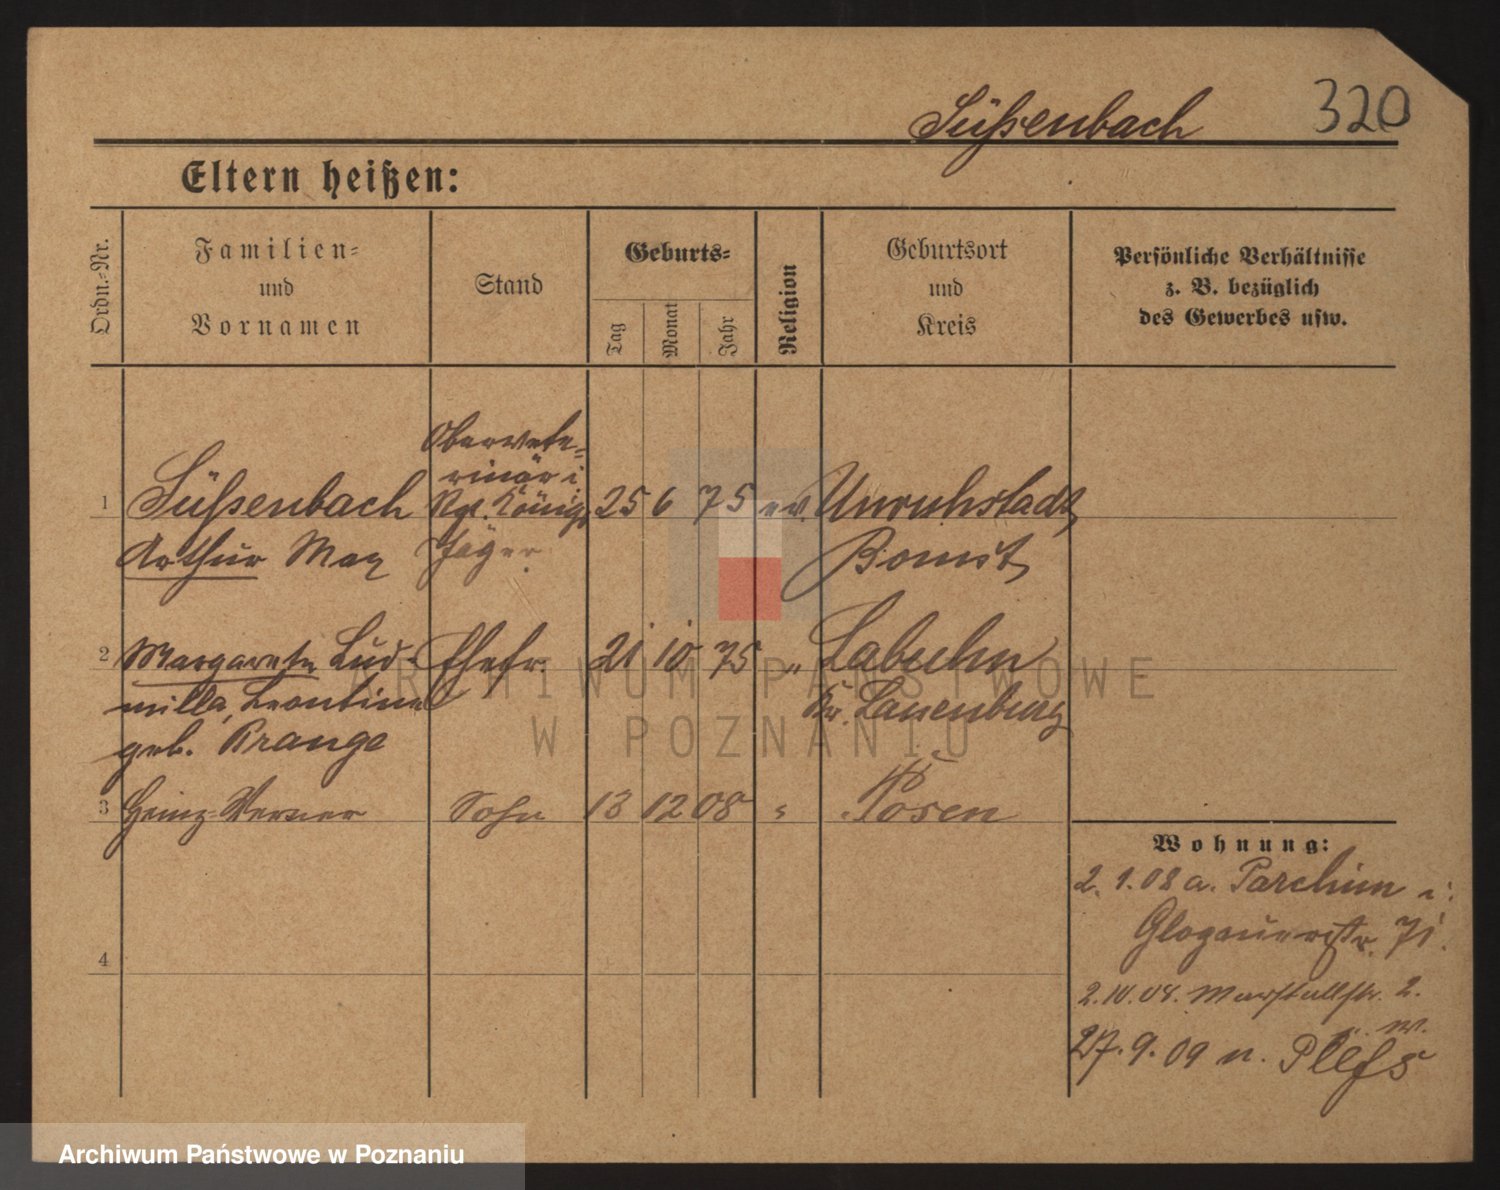 Süßenbach 320
Eltern heißen:
Ordn.-Nr.
Familien-
und
Vornamen
Stand
Geburts-
Tag
Monat
Jahr
Religion
Geburtsort
und
Kreis
Persönliche Verhältnisse
z. B. bezüglich
des Gewerbes usw.
Obervete-
rinär i.
1 Süßenbach Rgt. Königs 25 6 75 ev. Unruhstadt
Arthur Max Jäger Bomst
2 Margarete Lud- Ehefr. 21 10 75 " Labuhn
milla, Leontine Kr. Lauenburg
geb. Prange
3 Heinz-Werner Sohn 13 12 08 " Posen
4
Wohnung:
2. 1. 08 a. Parchim i.
Glogauerstr. 71.
2. 10. 08. Marstallstr. 2.
27. 9. 09 n.
ARCHIWUM PAŃSTWOWE
W POZNANIU
Archiwum Państwowe w Poznaniu